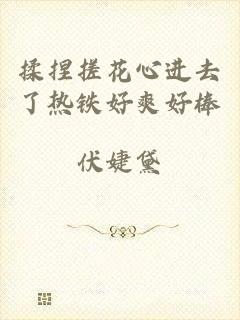 揉捏搓花心进去
了热铁好爽好棒
伏婕黛